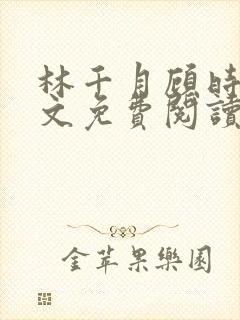 林千月顾時
文免費閱讀
金苹果樂園